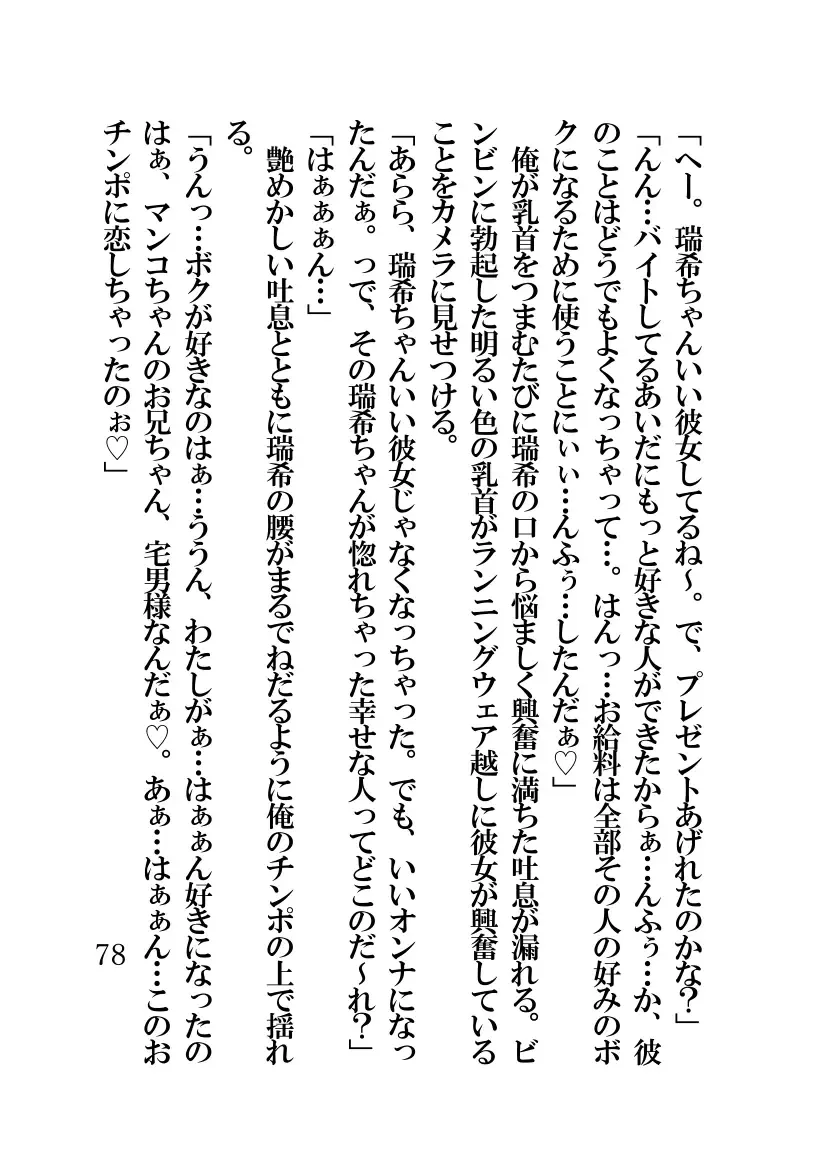 「へー。瑞希ちゃんいい彼女してるね～。で、プレゼントあげれたのかな？」
「んん…バイトしてるあいだにもっと好きな人ができたからぁ…んふぅ…か、彼
のことはどうでもよくなっちゃって…。はんっ…お給料は全部その人の好みのボ
クになるために使うことにぃぃ…んふぅ…したんだぁ♡」
　俺が乳首をつまむたびに瑞希の口から悩ましく興奮に満ちた吐息が漏れる。ビ
ンビンに勃起した明るい色の乳首がランニングウェア越しに彼女が興奮している
ことをカメラに見せつける。
「あらら、瑞希ちゃんいい彼女じゃなくなっちゃった。でも、いいオンナになっ
たんだぁ。っで、その瑞希ちゃんが惚れちゃった幸せな人ってどこのだ～れ？」
「はぁぁぁん…」
　艶めかしい吐息とともに瑞希の腰がまるでねだるように俺のチンポの上で揺れ
る。
「うんっ…ボクが好きなのはぁ…ううん、わたしがぁ…はぁぁん好きになったの
はぁ、マンコちゃんのお兄ちゃん、宅男様なんだぁ♡。あぁ…はぁぁん…このお
チンポに恋しちゃったのぉ♡」
78